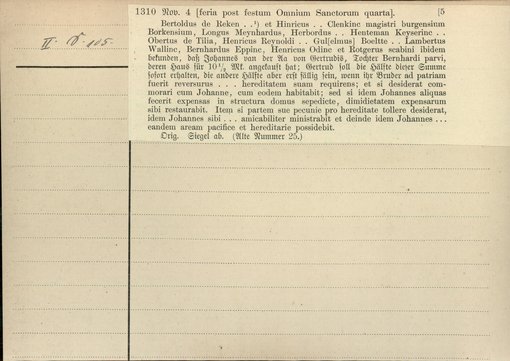 II D 105.
1310 Nov. 4 [feria post festum Omnium Sanctorum quarta]. [5
Bertoldus de Reken . .¹) et Hinricus . . Clenkinc magistri burgensium
Borkensium, Longus Meynhardus, Herbordus . . Henteman Keyserinc . .
Obertus de Tilia, Henricus Reynoldi . . Gul[elmus] Boeltte . . Lambertus
Wallinc, Bernhardus Eppinc, Henricus Odinc et Rotgerus scabini ibidem
bekunden, daß Johannes van der Aa von Gertrudis, Tochter Bernhardi parvi,
deren Haus für 10½ Mk. angekauft hat; Gertrud soll die Hälfte dieser Summe
sofort erhalten, die andere Hälfte aber erst fällig sein, wenn ihr Bruder ad patriam
fuerit reversurus . . . hereditatem suam requirens; et si desiderat com-
morari cum Johanne, cum eodem habitabit; sed si idem Johannes aliquas
fecerit expensas in structura domus sepedicte, dimidietatem expensarum
sibi restaurabit. Item si partem sue pecunie pro hereditate tollere desiderat,
idem Johannes sibi . . . amicabiliter ministrabit et deinde idem Johannes . . .
eandem aream pacifice et hereditarie possidebit.
Orig. Siegel ab. (Alte Nummer 25.)